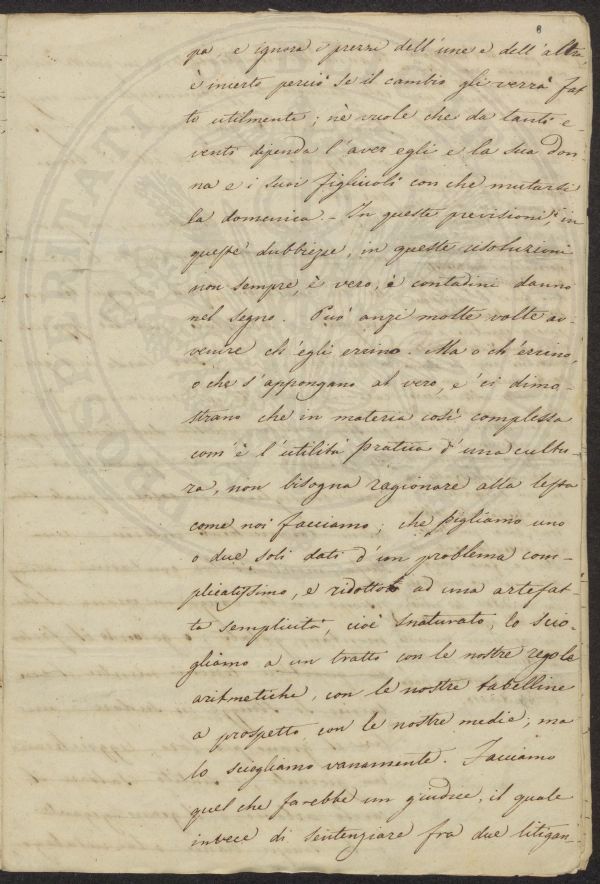 8
pa e ignora i prezzi dell'une e dell'altra
è incerto perciò se il cambio gli verrà fat
to utilmente; nè vuole che da tanti e-
venti dipenda l'aver egli e la sua don
na e i suoi figliuoli con che mutarsi
la domenica. - In queste previsioni, in
queste dubbiezze, in queste risoluzioni
non sempre, è vero, i contadini danno
nel segno. Può anzi molte volte av-
venire ch'egli errino. Ma o ch'errino,
o che s'appongano al vero, e' ci dimo-
strano che in materia così complessa
com'è l'utilità pratica d'una cultu-
ra, non bisogna ragionare alla lesta
come noi facciamo; che pigliamo uno
o due soli dati d'un problema com-
plicatissimo, e ridottolo ad una artefat-
ta semplicità, cioè snaturato, lo scio-
gliamo a un tratto con le nostre regole
aritmetiche, con le nostre tabelline
a prospetto con le nostre medie; ma
lo sciogliamo vanamente. Facciamo
quel che farebbe un giudice, il quale
invece di sentenziare fra due litigan-
PROSPERITATI